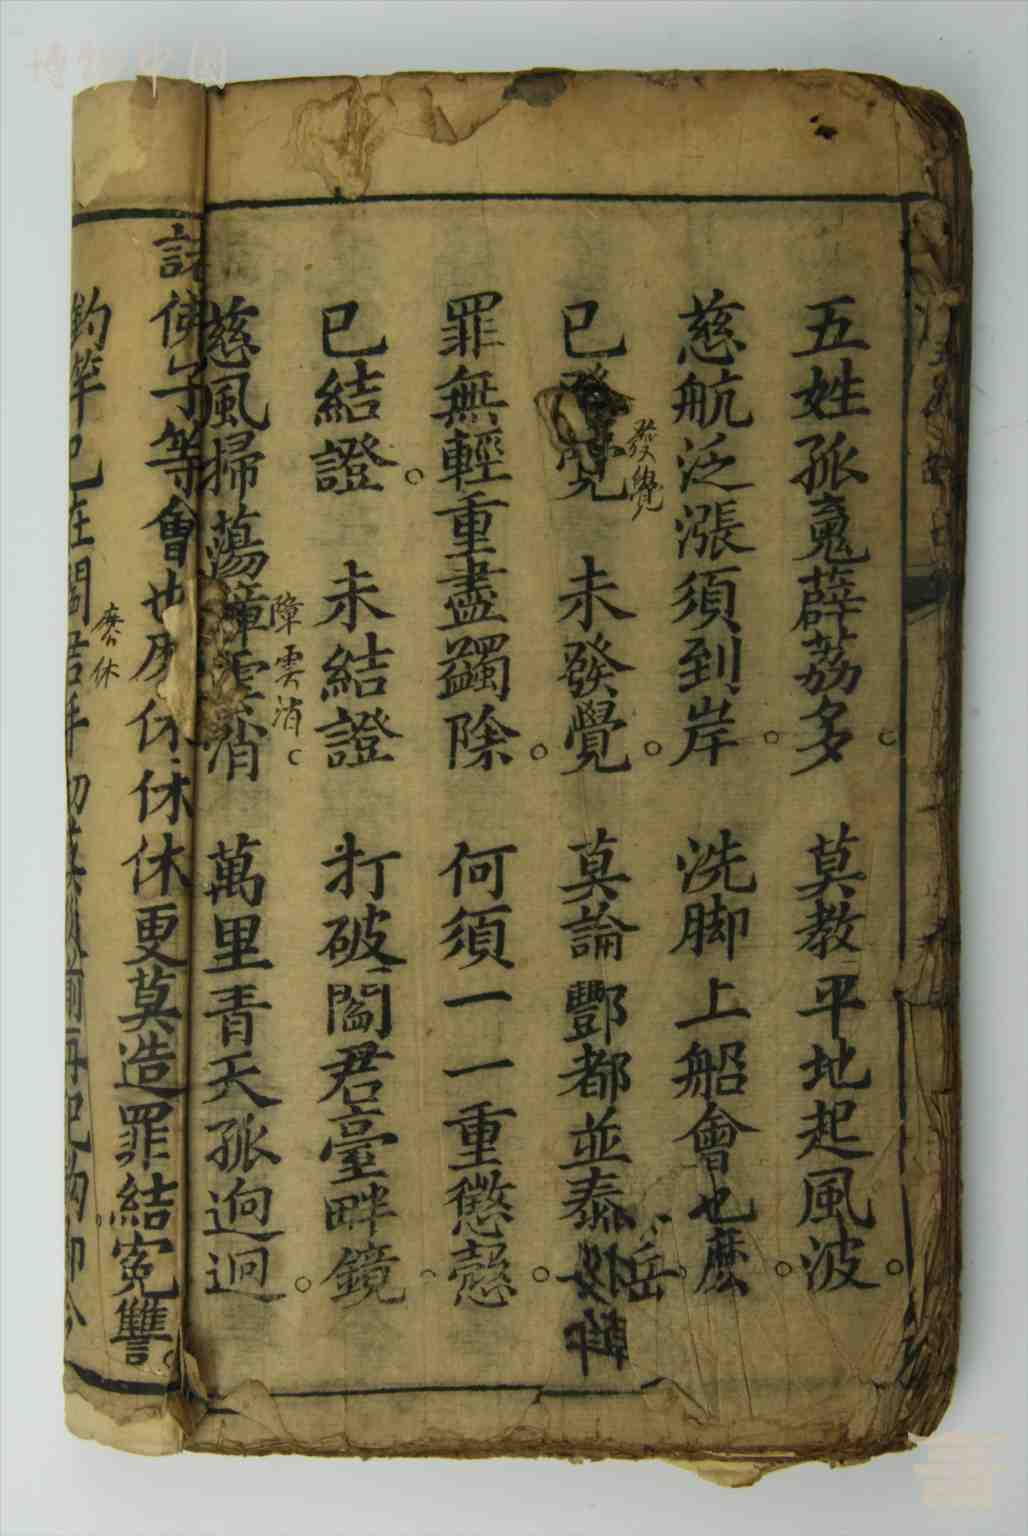 五姓孤魂薜茘多 莫教平地起風波
慈航泛漲須到岸 洗脚上船會也麽
發覺
已發覺 未發覺 莫論酆都並泰
岳
罪無輕重盡蠲除 何須一一重懲愆
已結證 未結證 打破閻君臺畔鏡
障雲消
慈風掃蕩障雲消 萬里青天孤逈迥
佛子等會也麽休休休更莫造罪結寃讐
麽休
鈞筆已在閻君手切莫
博物中国